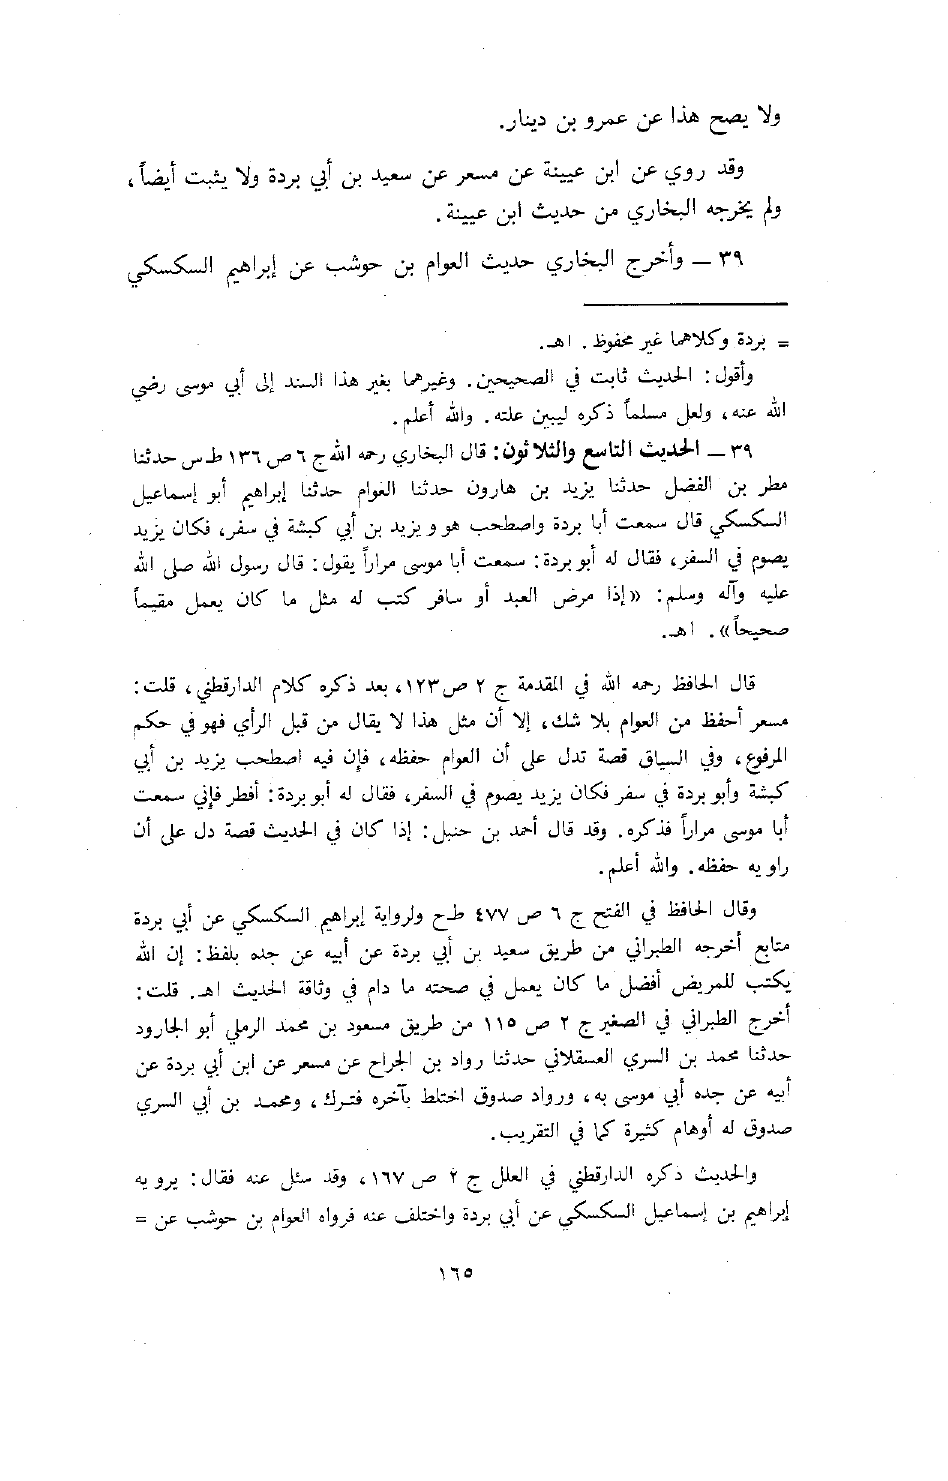 ولا يصح هذا عن عمرو بن دينار.
وقد روي عن ابن عيينة عن مسعر عن سعيد بن أبي بردة ولا يثبت أيضاً،
ولم يخرجه البخاري من حديث ابن عيينة.
٣٩ ــ وأخرج البخاري حديث العوام بن حوشب عن إبراهيم السكسكي
= بردة وكلاهما غير محفوظ. اهـ.
وأقول: الحديث ثابت في الصحيحين. وغيرهما بغير هذا السند إلى أبي موسى رضي
الله عنه، ولعل مسلماً ذكره ليبين علته. والله أعلم.
٣٩ ــ الحديث التاسع والثلاثون: قال البخاري رحمه الله ج ٦ ص ١٣٦ ط س حدثنا
مطر بن الفضل حدثنا يزيد بن هارون حدثنا العوام حدثنا إبراهيم أبو إسماعيل
السكسكي قال سمعت أبا بردة واصطحب هو ويزيد بن أبي كبشة في سفر، فكان يزيد
يصوم في السفر، فقال له أبو بردة: سمعت أبا موسى مراراً يقول: قال رسول الله صلى الله
عليه وآله وسلم: «إذا مرض العبد أو سافر كتب له مثل ما كان يعمل مقيماً
صحيحاً». اهـ.
قال الحافظ رحمه الله في المقدمة ج ٢ ص ١٢٣، بعد ذكره كلام الدارقطني، قلت:
مسعر أحفظ من العوام بلا شك، إلا أن مثل هذا لا يقال من قبل الرأي فهو في حكم
المرفوع، وفي السياق قصة تدل على أن العوام حفظه، فإن فيه اصطحب يزيد بن أبي
كبشة وأبو بردة في سفر فكان يزيد يصوم في السفر، فقال له أبو بردة: أفطر فإني سمعت
أبا موسى مراراً فذكره. وقد قال أحمد بن حنبل: إذا كان في الحديث قصة دل على أن
راويه حفظه. والله أعلم.
وقال الحافظ في الفتح ج ٦ ص ٤٧٧ ط ح ولرواية إبراهيم السكسكي عن أبي بردة
متابع أخرجه الطبراني من طريق سعيد بن أبي بردة عن أبيه عن جده بلفظ: إن الله
يكتب للمريض أفضل ما كان يعمل في صحته ما دام في وثاقة الحديث اهـ. قلت:
أخرج الطبراني في الصغير ج ٢ ص ١١٥ من طريق مسعود بن محمد الرملي أبو الجارود
حدثنا محمد بن السري العسقلاني حدثنا رواد بن الجراح عن مسعر عن ابن أبي بردة عن
أبيه عن جده أبي موسى به، ورواد صدوق اختلط بآخره فترك، ومحمد بن أبي السري
صدوق له أوهام كثيرة كما في التقريب.
والحديث ذكره الدارقطني في العلل ج ٢ ص ١٦٧، وقد سئل عنه فقال: يرويه
إبراهيم بن إسماعيل السكسكي عن أبي بردة واختلف عنه فرواه العوام بن حوشب عن =
١٦٥